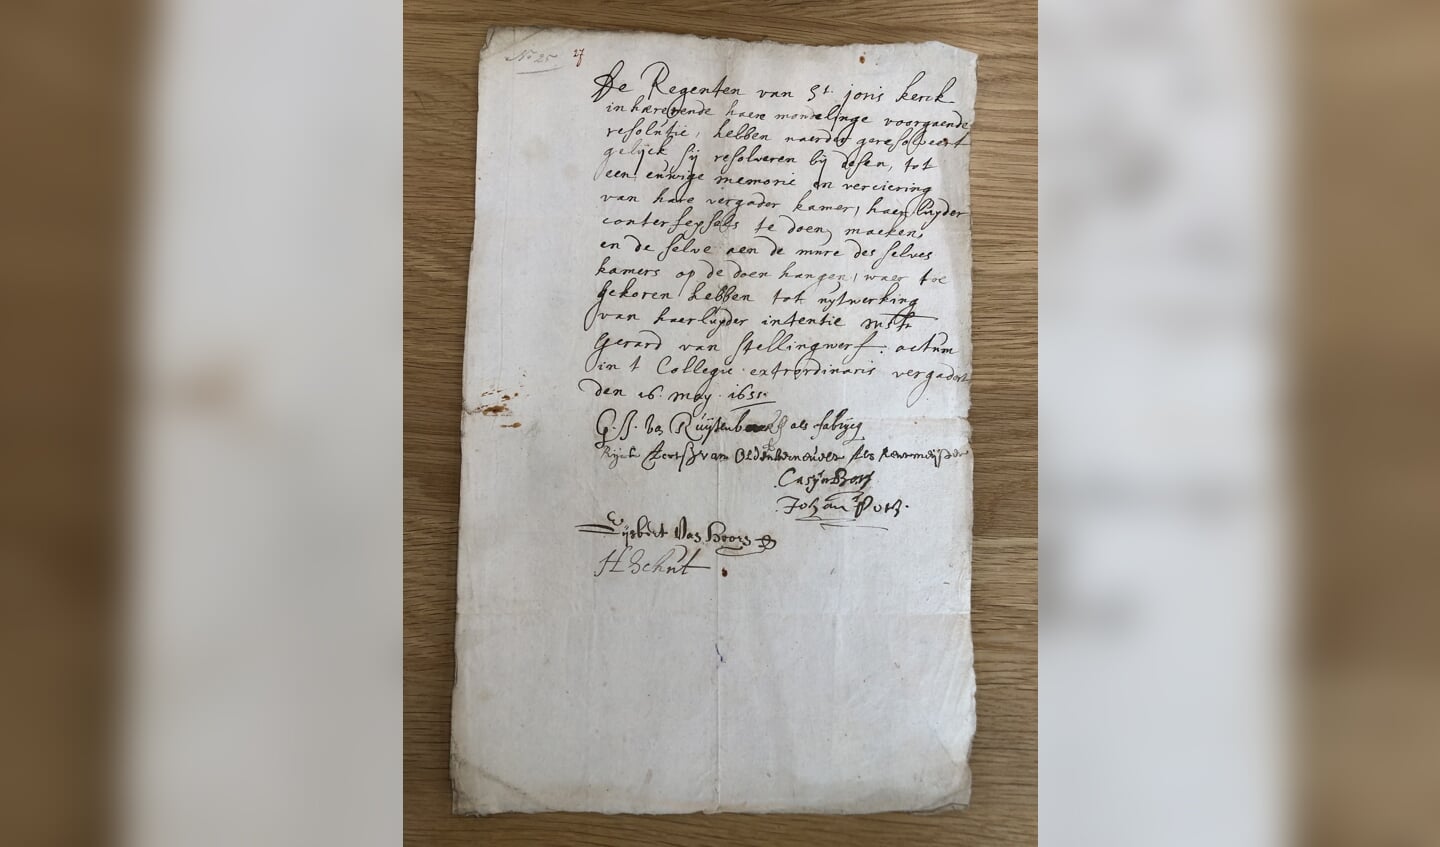 No 25
27
De Regenten van St. joris kerck
inhærerende haere mondelinge voorgaende
resolutie, hebben naerder geresolveert
gelijck sij resolveren bij desen, tot
een euwige memorie en verciering
van hare vergader kamer, haerluyder
conterfeysels te doen maeken,
en de selve aen de mure des selves
kamers op de doen hangen, waer toe
gekoren hebben tot uytwerking
van haerluyder intentie
Gerard van Stellingwerf. actum
in t Collegie extrordinaris vergadert
den 16 may 1655.
als fabryq
van Oldenbernevelt als Rentmeijster
Johan
Gijsbert Van Hoorn
H Schut